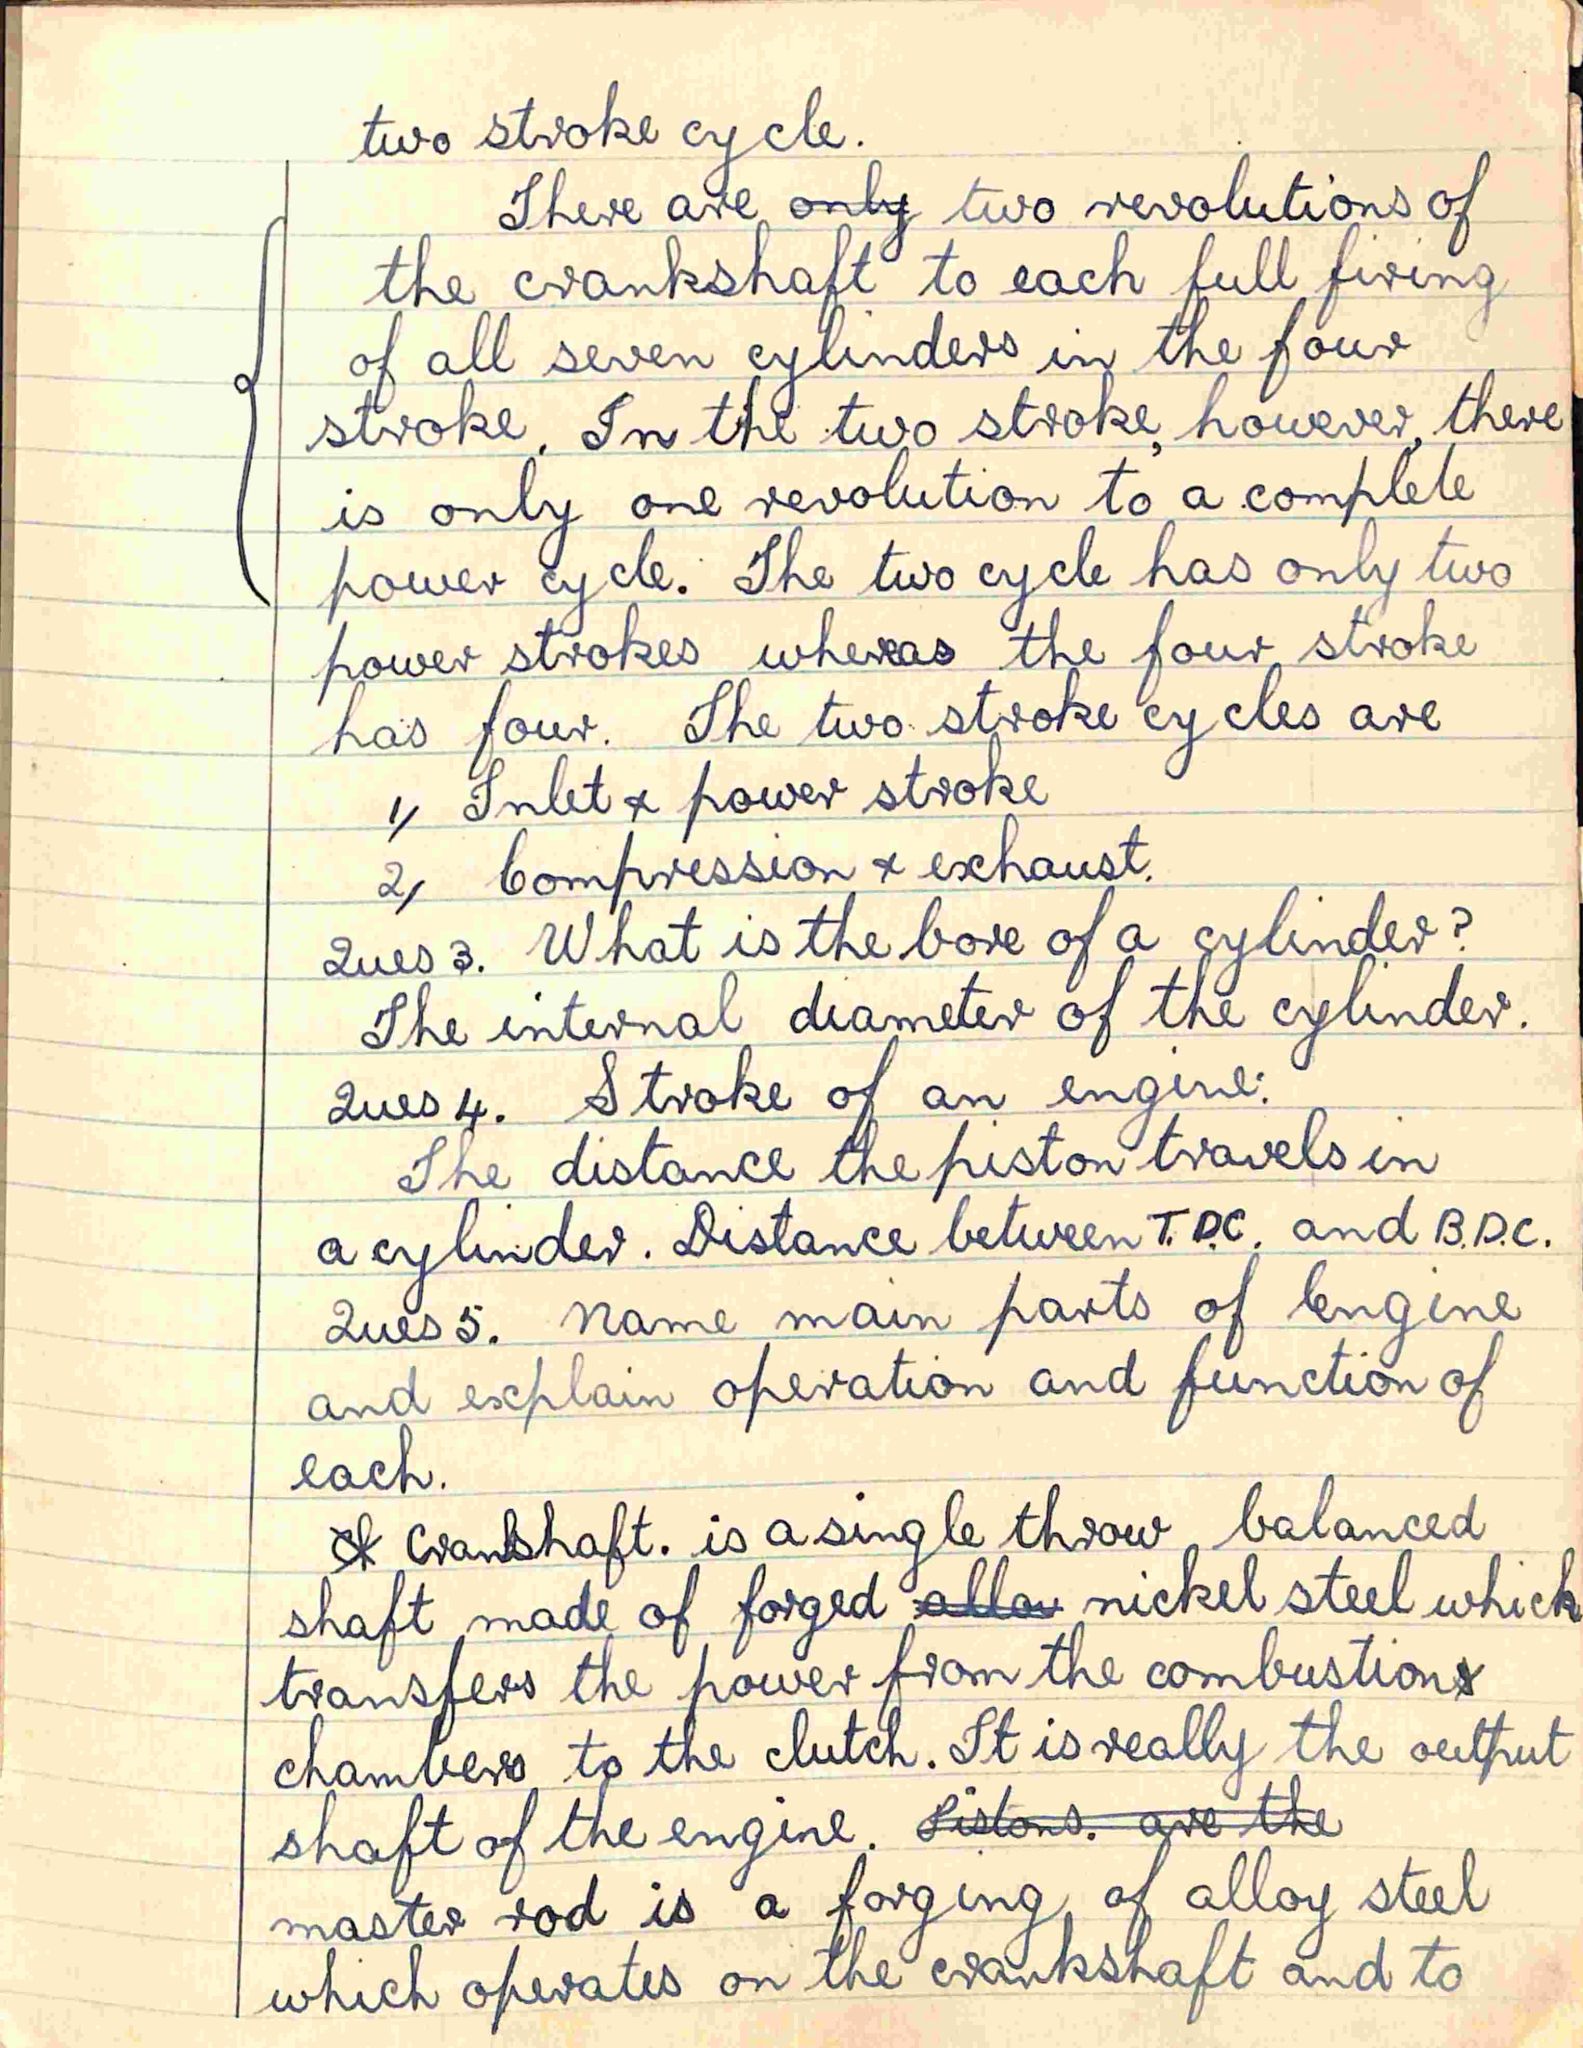 two stroke cycle.
There are only two revolutions of
the crankshaft to each full firing
of all seven cylinders in the four
stroke. In the two stroke, however, there
is only one revolution to a complete
power cycle. The two cycle has only two
power strokes whereas the four stroke
has four. The two stroke cycles are
1, Inlet & power stroke
2, Compression & exhaust.
Ques 3. What is the bore of a cylinder?
The internal diameter of the cylinder.
Ques 4. Stroke of an engine:
The distance the piston travels in
a cylinder. Distance between T.D.C. and B.D.C.
Ques 5. Name main parts of Engine
and explain operation and function of
each.
Crankshaft. is a single throw balanced
shaft made of forged alloy nickel steel which
transfers the power from the combustion
chambers to the clutch. It is really the output
shaft of the engine. Pistons. are the
master rod is a forging of alloy steel
which operates on the crankshaft and to